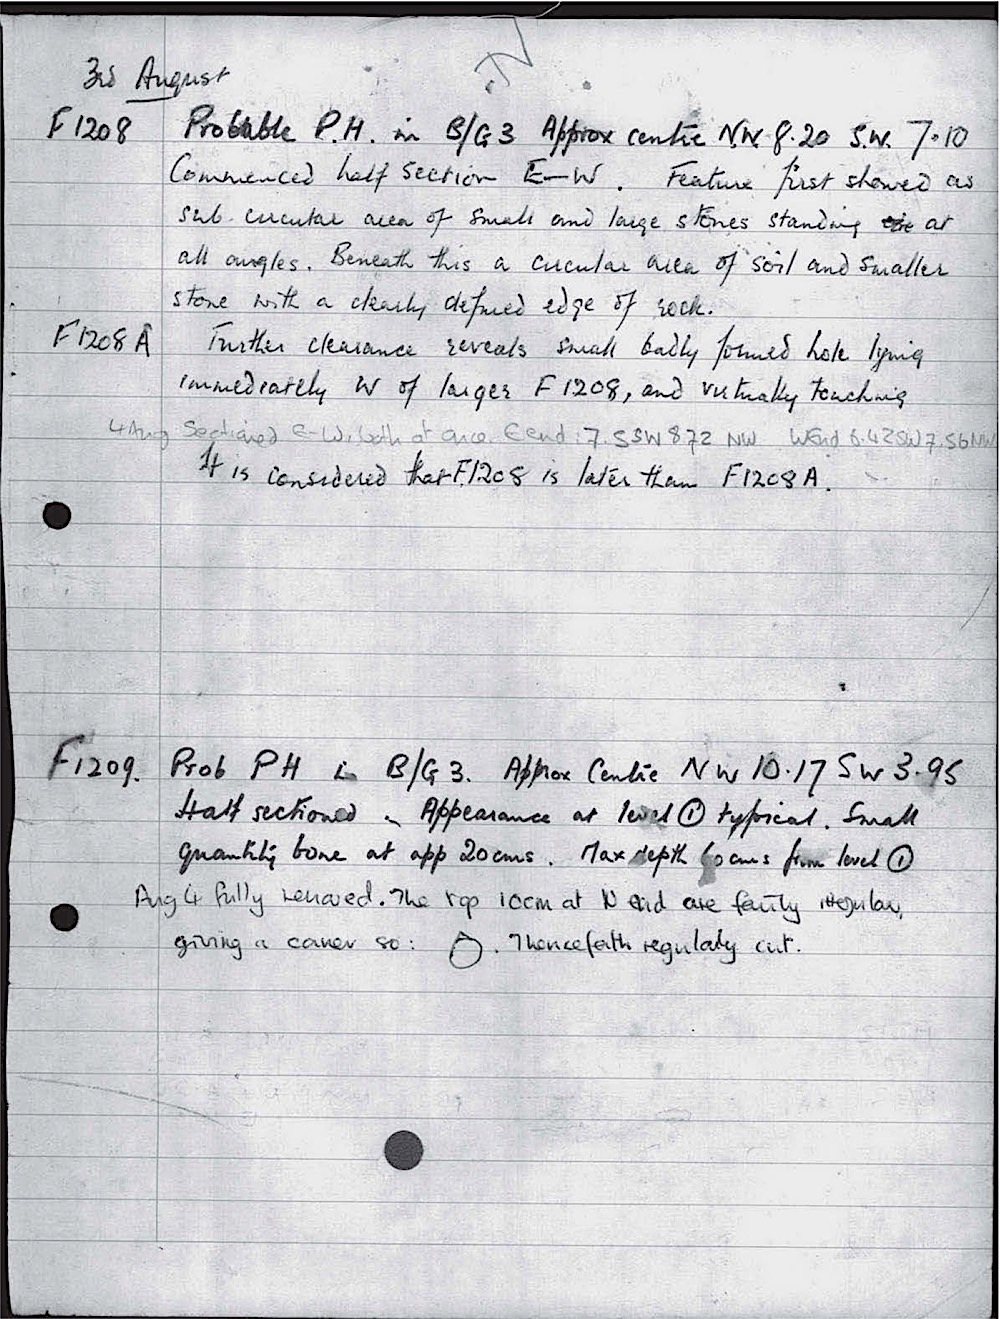 3rd August
F1208 Probable P.H. in B/G3 Approx centre N.W. 8.20 S.W. 7.10
Commenced half section E-W. Feature first showed as
sub-circular area of small and large stones standing at
all angles. Beneath this a circular area of soil and smaller
stone with a clearly defined edge of rock.
F1208A Further clearance reveals small badly formed hole lying
immediately W of larger F1208, and virtually touching
4 Aug Sectioned E-W, both at once. E end: 7.55W 8.72 NW W End 6.42SW 7.56NW
It is considered that F.1208 is later than F1208A.
F1209. Prob PH in B/G3. Approx Centre NW 10.17 SW 3.95
Half sectioned. Appearance at level ① typical. Small
quantity bone at app 20cms. Max depth cms from level ①
Aug 4 fully removed. The top 10cm at N end are fairly irregular,
giving a corner so: . Thenceforth regularly cut.